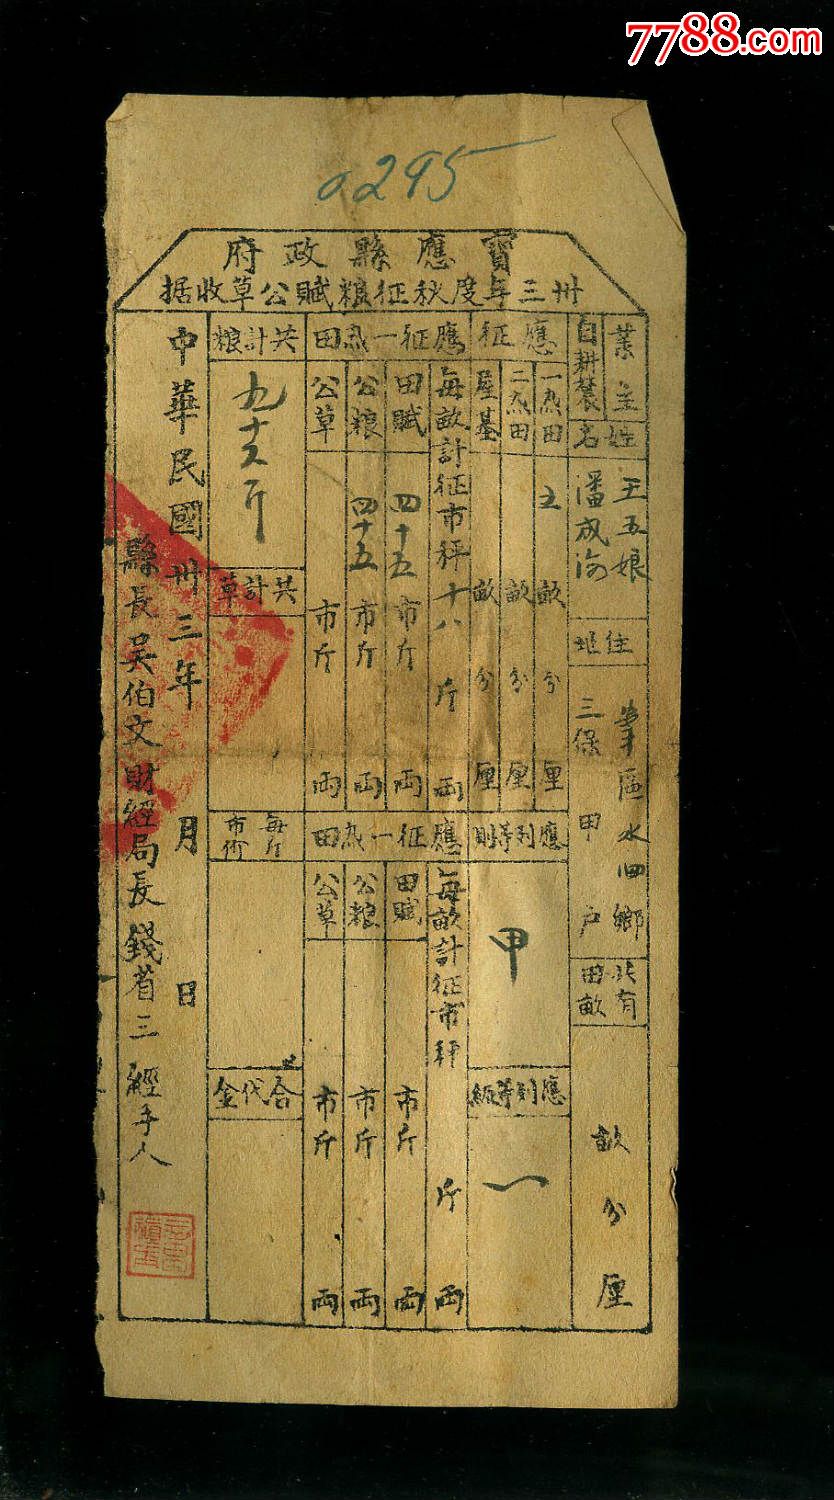 7788.com
0295
寶應縣政府
卅三年度秋征粮賦公草收据
業主
自耕農
姓名
王五娘
潘成海
住址
區水四鄉
三保 甲 户
共有田畝
畝 分 厘
應征
一𤍠田 畝 分 厘
二𤍠田 畝 分 厘
屋基 畝 分 厘
應列等則
甲
應列等級
一
應征一𤍠田
每畝計征市秤十八斤 兩
田賦 四十五市斤 兩
公粮 四十五市斤 兩
公草 市斤 兩
應征一𤍠田
每畝計征市秤 斤 兩
田賦 市斤 兩
公粮 市斤 兩
公草 市斤 兩
共計粮
共計草
每斤市價
合代金
中華民國卅三年 月 日
縣長吳伯文財經局長錢省三 經手人